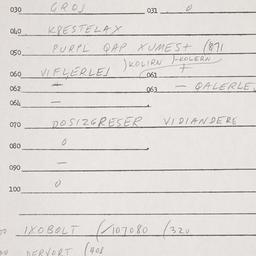 030 GROJ 031 0
040 KRESTELAX
050 PURPL QAP XUMEST (871
)KOLIRN )-KOLERN
060 VIFLERLEJ 061 +
062 + 063 — QALERLE
064 —
070 DOSIZGRESER VIDIANDERE
080 0
090 —
100 0
IXOBOLT (/107080 (320
DERVORT (408